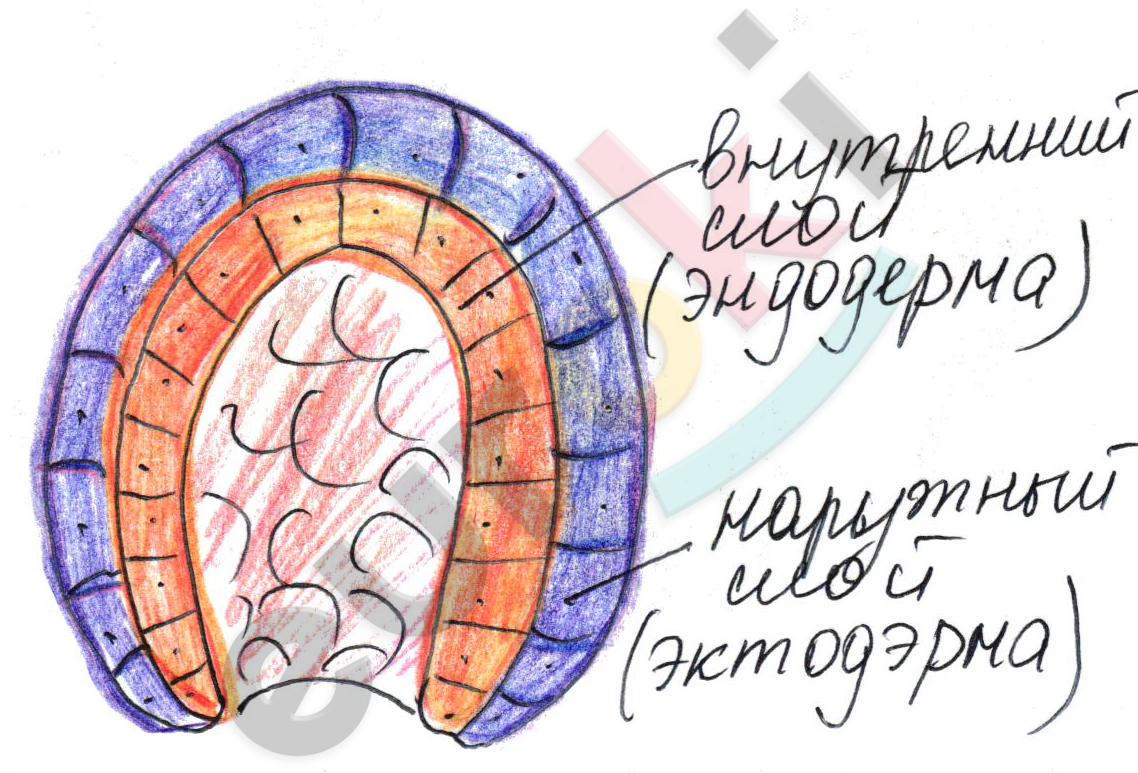 внутренний
слой
(эндодерма)
наружный
слой
(эктодэрма)
euroki